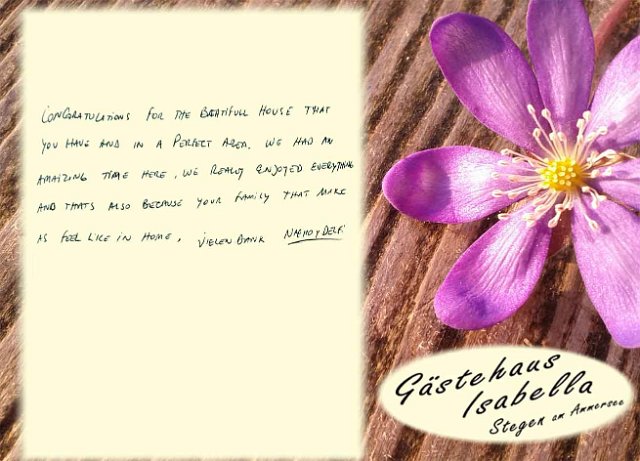 CONGRATULATIONS FOR THE BEATIFULL HOUSE THAT
YOU HAVE AND IN A PERFECT AREA. WE HAD AN
AMAIZING TIME HERE, WE REALLY ENJOYED EVERYTHING
AND THATS ALSO BECAUSE YOUR FAMILY THAT MAKE
AS FEEL LIKE IN HOME, VIELEN DANK NACHO Y DELFI
Gästehaus
Isabella
Stegen am Ammersee